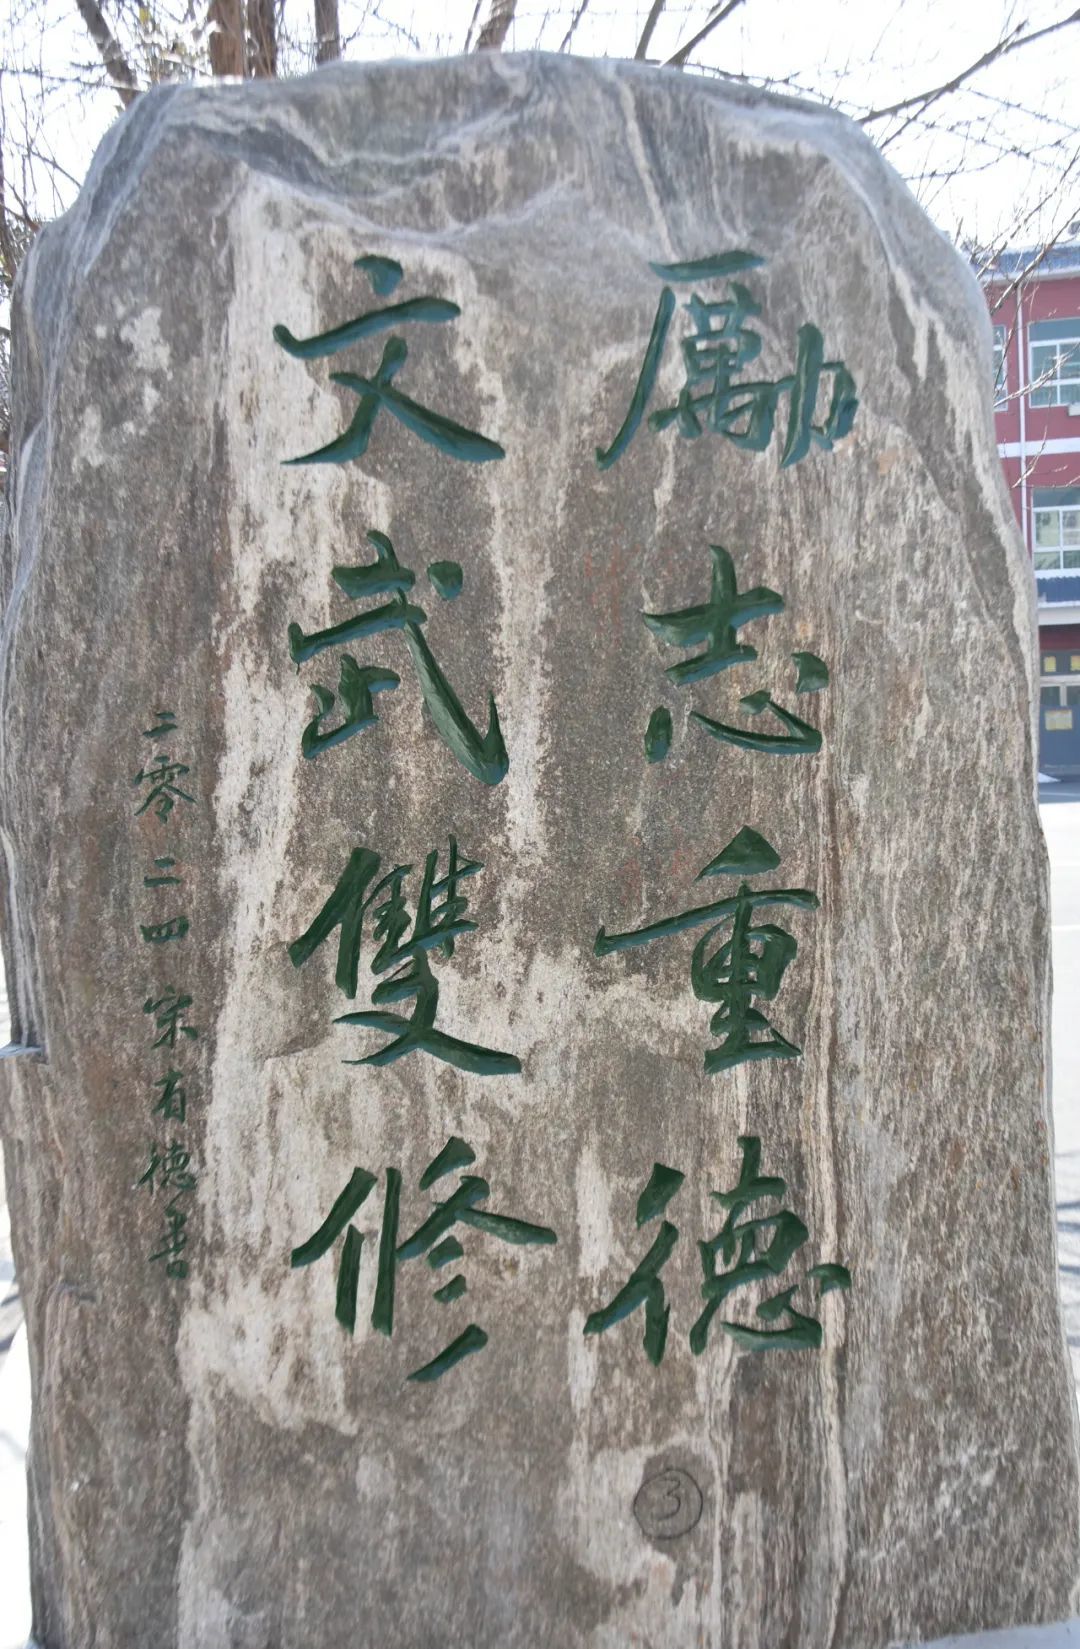 勵志重德
文武雙修
二零二四宋有德書
3